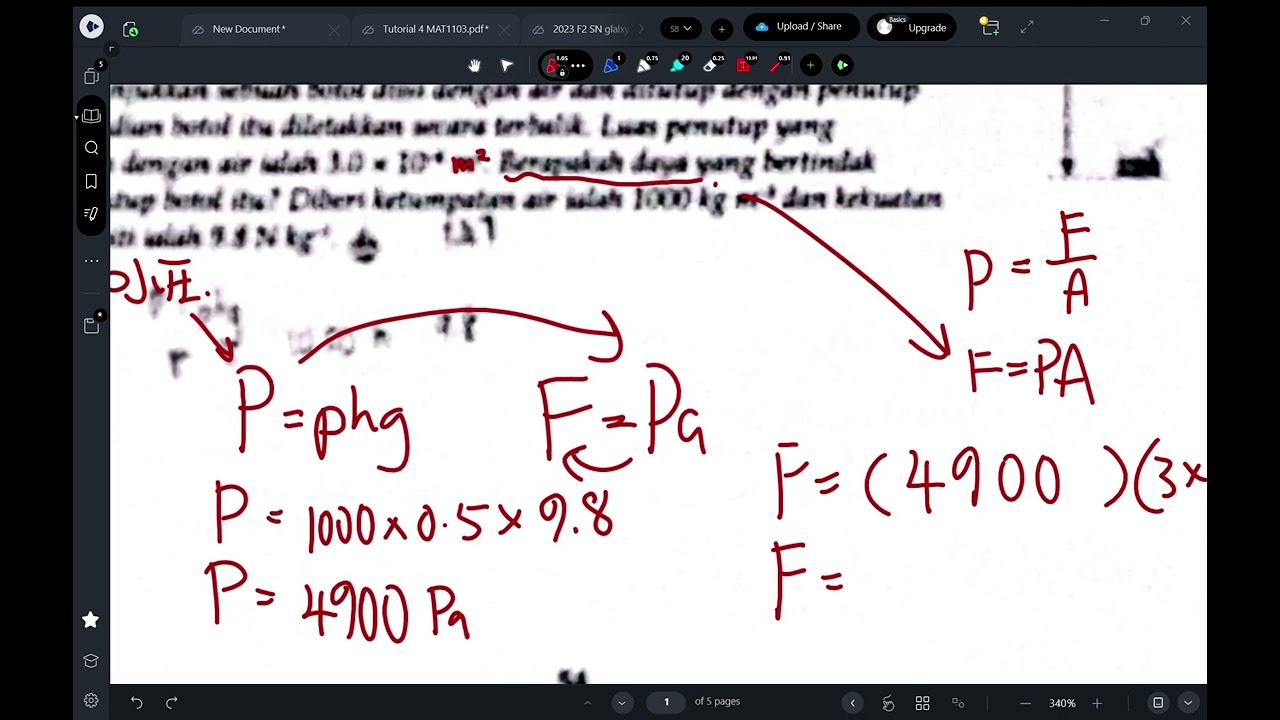 New Document *
Tutorial 4 MAT1103.pdf*
2023 F2 SN
58
Upload / Share
Basics
Upgrade
5
1.05
1
0.75
20
0.25
13.91
0.91
sebuah botol diisi dengan air dan ditutup dengan penutup
botol itu diletakkan secara terbalik. Luas penutup yang
dengan air ialah 3.0 × 10⁻⁴ m² Berapakah daya yang bertindak
botol itu? Diberi ketumpatan air ialah 1000 kg m⁻³ dan kekuatan
ialah 9.8 N kg⁻¹
P = F/A
F = PA
P = ρhg
F = Pa
F = (4900 )(3×
P = 1000 × 0.5 × 9.8
F =
P = 4900 Pa
54
1
of 5 pages
340%